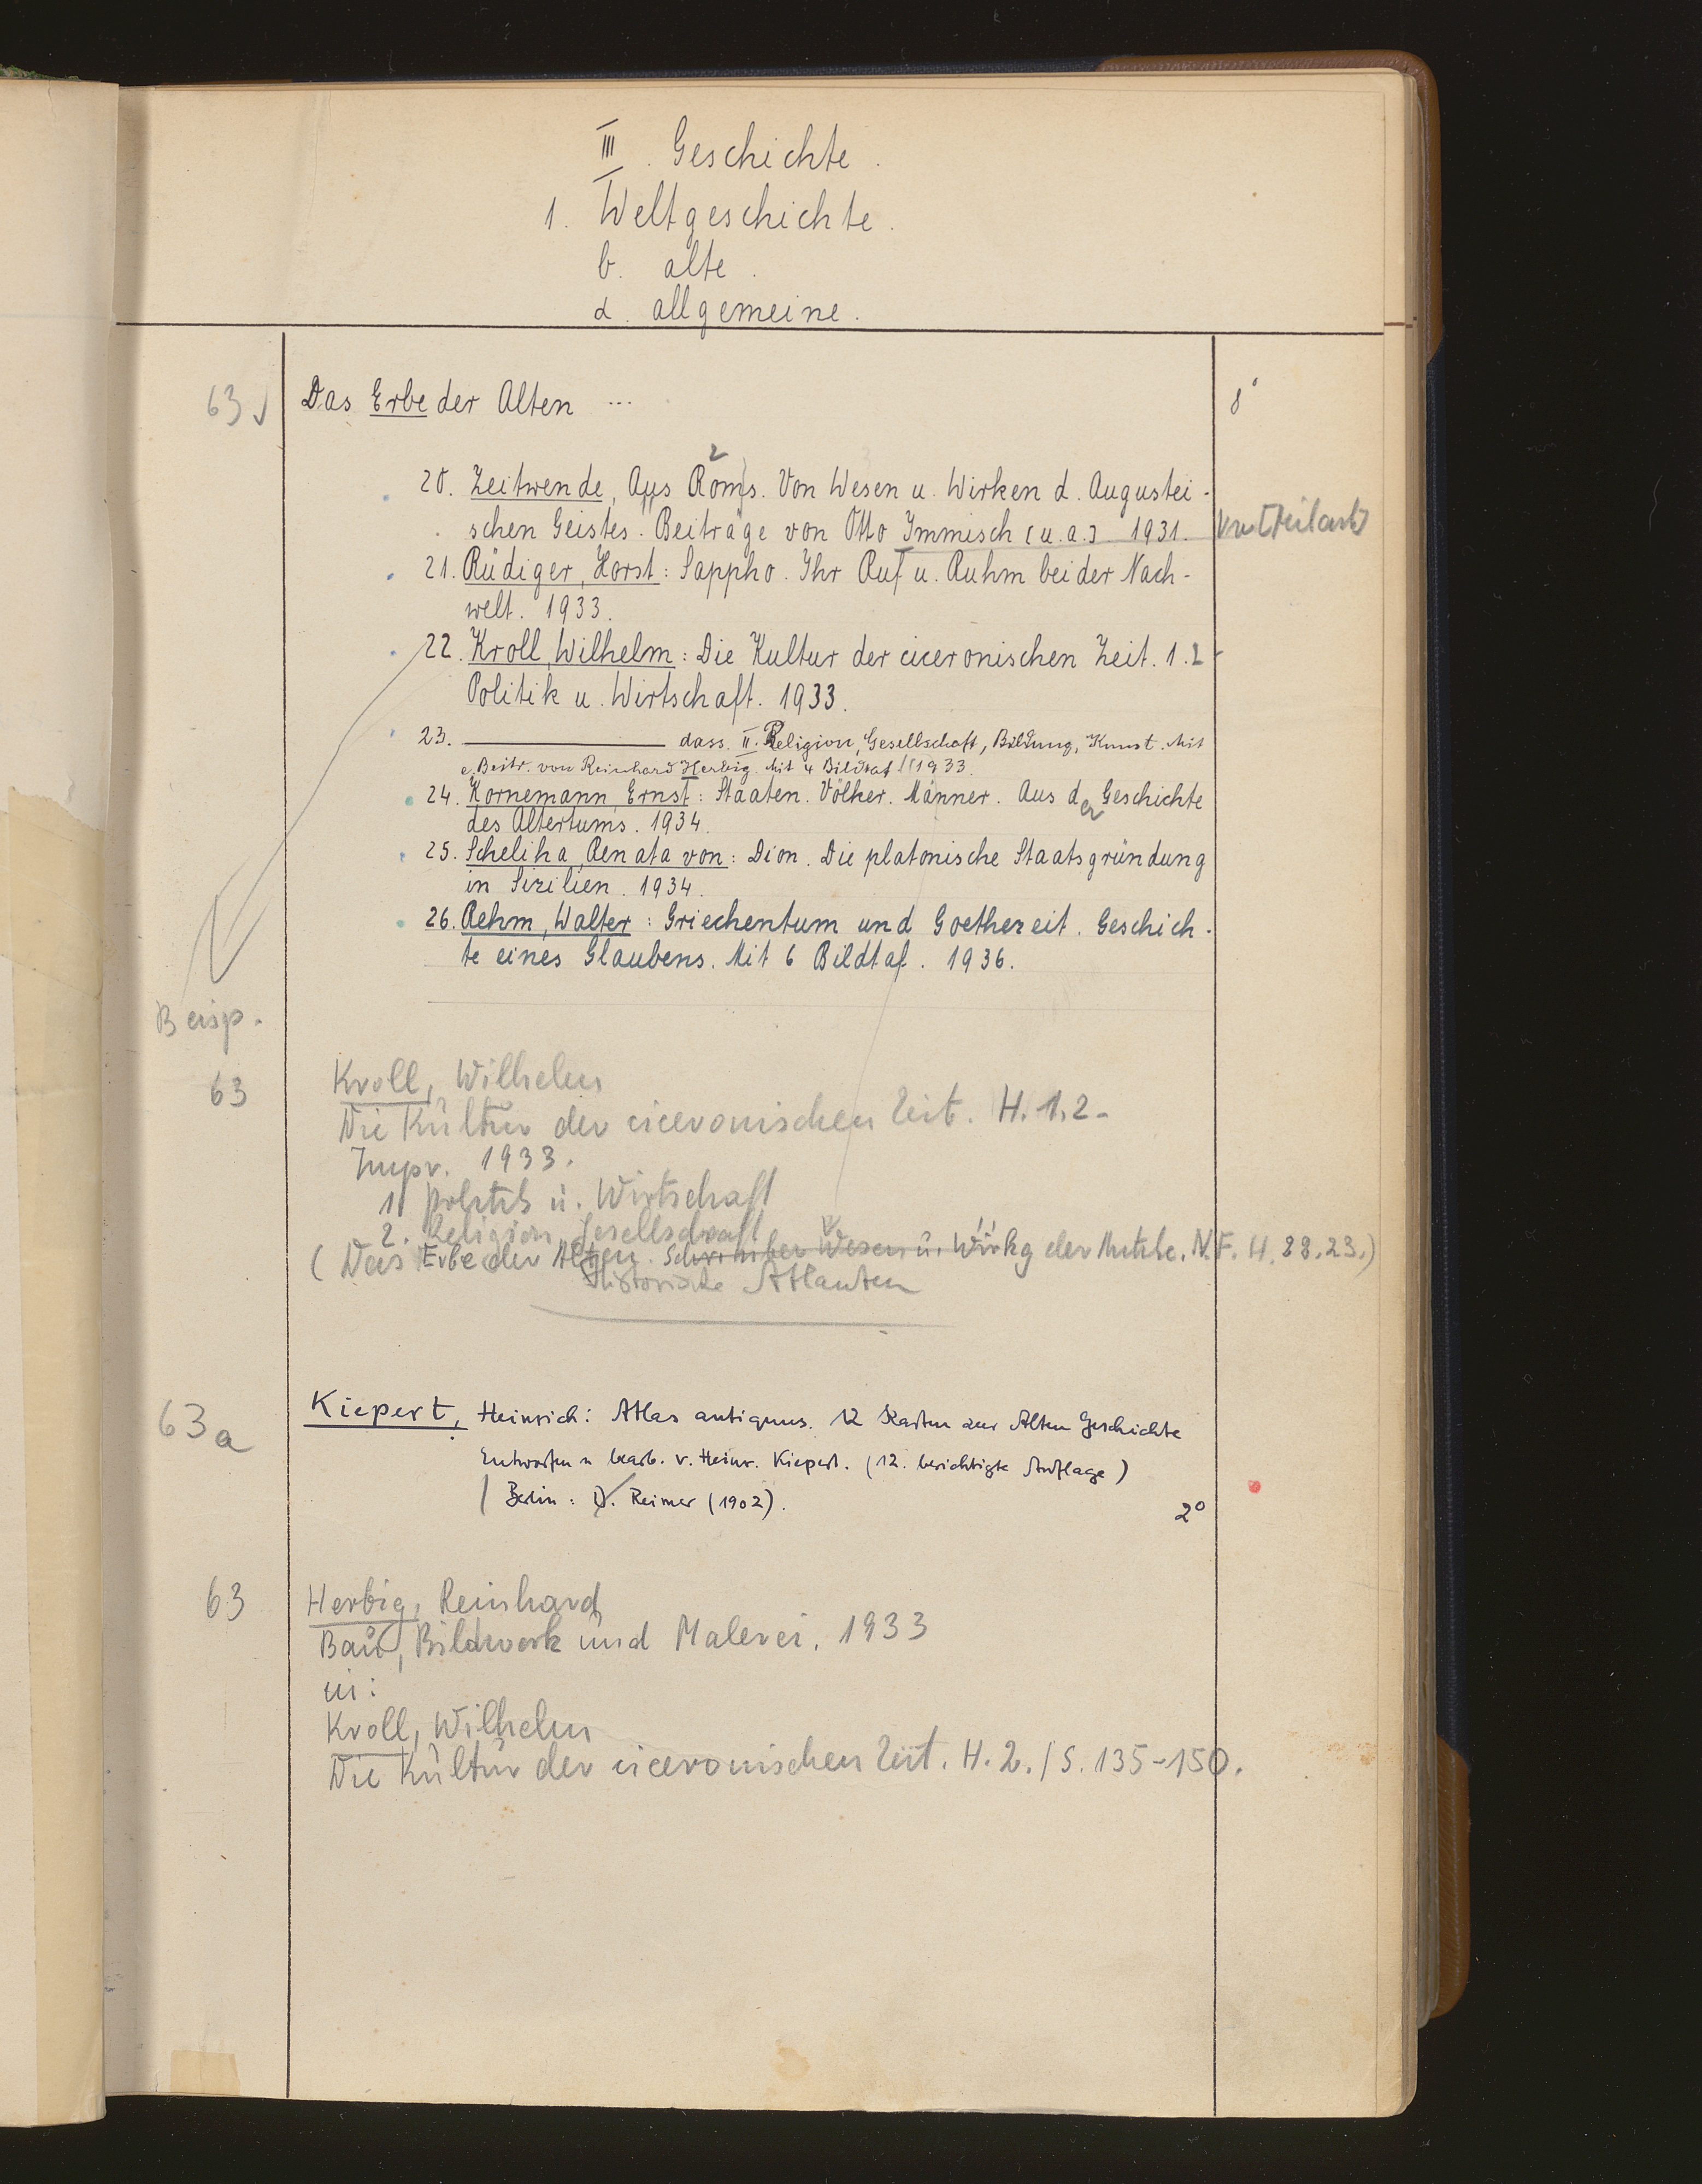 III. Geschichte.
1. Weltgeschichte.
b. alte.
α. allgemeine.
63 Das Erbe der Alten ... 8°
20. Zeitwende, Aus Roms. Von Wesen u. Wirken d. Augustei-
schen Geistes. Beiträge von Otto Immisch (u. a.) 1931.
21. Rüdiger, Horst: Sappho. Ihr Ruf u. Ruhm bei der Nach-
welt. 1933.
22. Kroll, Wilhelm: Die Kultur der ciceronischen Zeit. 1.2
Politik u. Wirtschaft. 1933.
23. ——— dass. II. Religion, Gesellschaft, Bildung, Kunst. Mit
e. Beitr. von Reinhard Herbig. Mit 4 Bildtaf. 1933.
24. Kornemann, Ernst: Staaten. Völker. Männer. Aus der Geschichte
des Altertums. 1934.
25. Scheliha, Renata von: Dion. Die platonische Staatsgründung
in Sizilien. 1934.
26. Rehm, Walter: Griechentum und Goethezeit. Geschich-
te eines Glaubens. Mit 6 Bildtaf. 1936.
Beisp.
63 Kroll, Wilhelm
Die Kultur der ciceronischen Zeit. H. 1.2-
Impr. 1933.
1. Politik u. Wirtschaft
2. Religion, Gesellschaft
(Das Erbe der Alten. Schr. über Wesen u. Wirkg der Antike. N.F. H. 22.23.)
Historische Atlanten
63a Kiepert, Heinrich: Atlas antiquus. 12 Karten zur Alten Geschichte
Entworfen u bearb. v. Heinr. Kiepert. (12. berichtigte Auflage)
/ Berlin: D. Reimer (1902). 2°
63 Herbig, Reinhard
Bau, Bildwerk und Malerei. 1933
in:
Kroll, Wilhelm
Die Kultur der ciceronischen Zeit. H. 2. / S. 135-150.